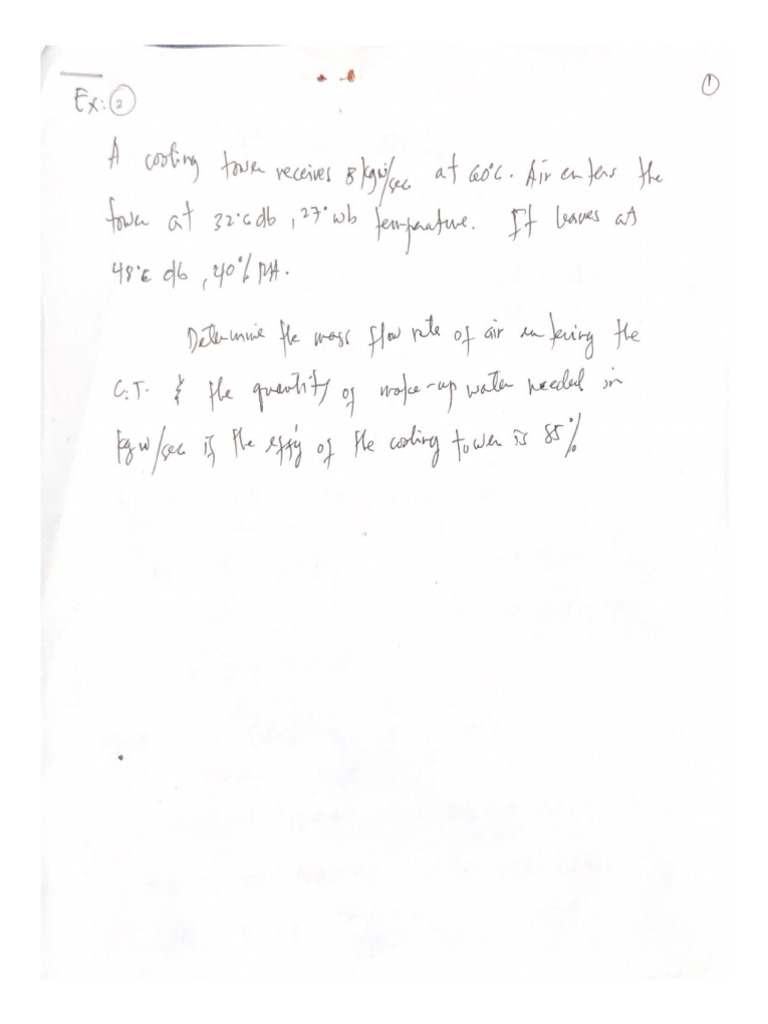 ①
Ex: ②
A cooling tower receives 8 kgw/sec at 60°C. Air enters the
tower at 32°C db, 27° wb temperature. It leaves at
48°C db, 40% RH.
Determine the mass flow rate of air entering the
C.T. & the quantity of make-up water needed in
kgw/sec if the eff'y of the cooling tower is 85%